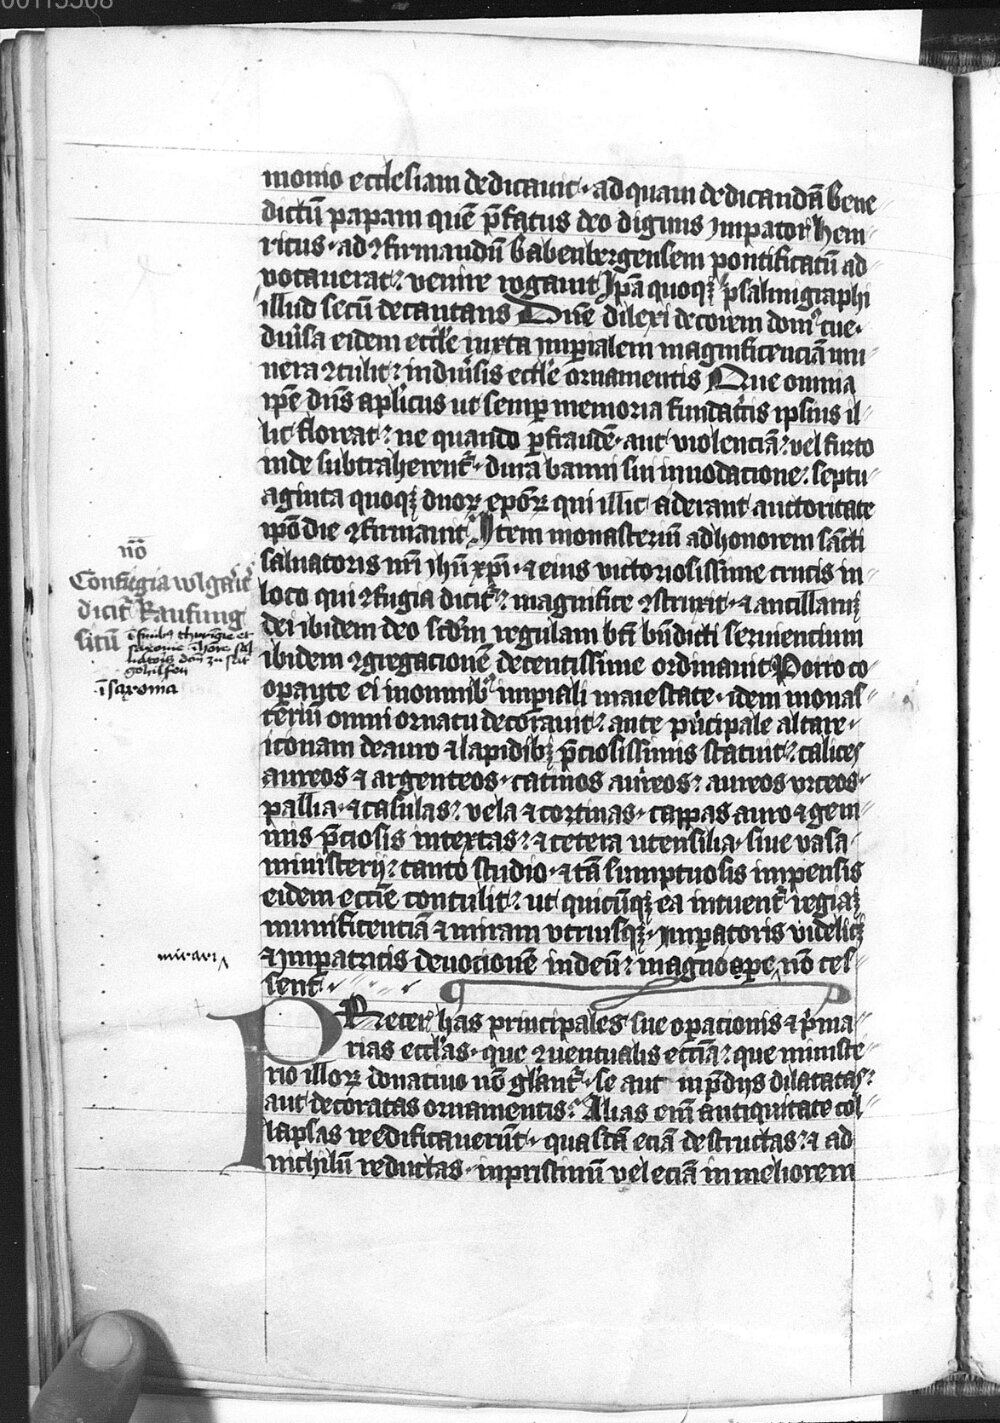 00113308
monio ecclesiam dedicauit · ad quam dedicandā bene
dictū papam quē p̄fatus deo dignus imp̄ator hein
ricus · ad ꝯfirmandū babenbergensem pontificatū ad
vocauerat: venire rogauit Ip̄a quoqꝫ psalmigraphi
illud secū decantans Dn̄e dilexi decorem dom⁹ tue ·
diu̓sa eidem eccl̓e iuxta imp̄ialem magnificenciā mu
nera ꝯtulit: in diu̓sis eccl̓e ornamentis Que omnia
ip̄e dn̄s ap̄licus ut semp̄ memoria fundat̓is ipsius il
lic floreat: ne quando p̄ fraudē · aut violenciā: vel furto
inde subtraherent̓ · dura banni sui innodacione: septu
aginta quoqꝫ duoꝝ ep̄oꝝ qui illic aderant auctoritate
ip̄o die ꝯfirmauit: Item monasteriū ad honorem sācti
saluatoris nr̄i ihū xp̄i · ⁊ eius victoriosissime crucis in
loco qui ꝯfugia dicit̓: magnifice ꝯstruxit · ⁊ ancillaꝝ
dei ibidem deo scd̄m regulam bt̄i bn̄dicti seruiencium
ibidem ꝯgregacionē decentissime ordinauit Porro co
op̄ante ei in omnibꝰ imp̄iali maiestate · idem monas
teriū omni ornatu decorauit: ante pͥncipale altare ·
iconam de auro ⁊ lapidibꝫ p̄ciosissimis statuit: calices
aureos ⁊ argenteos · catinos aureos: aureos vrceos ·
pallia · ⁊ casulas: vela ⁊ cortinas · cappas auro ⁊ gem
mis p̄ciosis intextas: ⁊ cetera utensilia · siue vasa
ministerij: tanto studio · ⁊ tā sumptuosis impensis
eidem eccl̄ie contulit: ut quicūqꝫ ea intuent̓ regiaꝫ
munificenciā ⁊ miram vtriusqꝫ · imp̄atoris videlicꝫ
⁊ imp̄atricis deuocionē in deū: magnoope nō ces
sent̓ ·
Preter has principales sue op̄acionis ⁊ pͥma
rias eccl̓as · que ꝯuentualis eccl̄ia: que ministe
rio illoꝝ donatiuo nō gl̓ant̓ · se aut in p̄diis dilatatas:
aut decoratas ornamentis: Alias eni̅ antiquitate col
lapsas reedificauerūt · quasdā eciā destructas: ⁊ ad
nichilū reductas · in pristinū vel eciā in meliorem
nō
Confugia wlgarit̓
dicit̓ Kaufung
sitū
i̅ saxonia
mirari